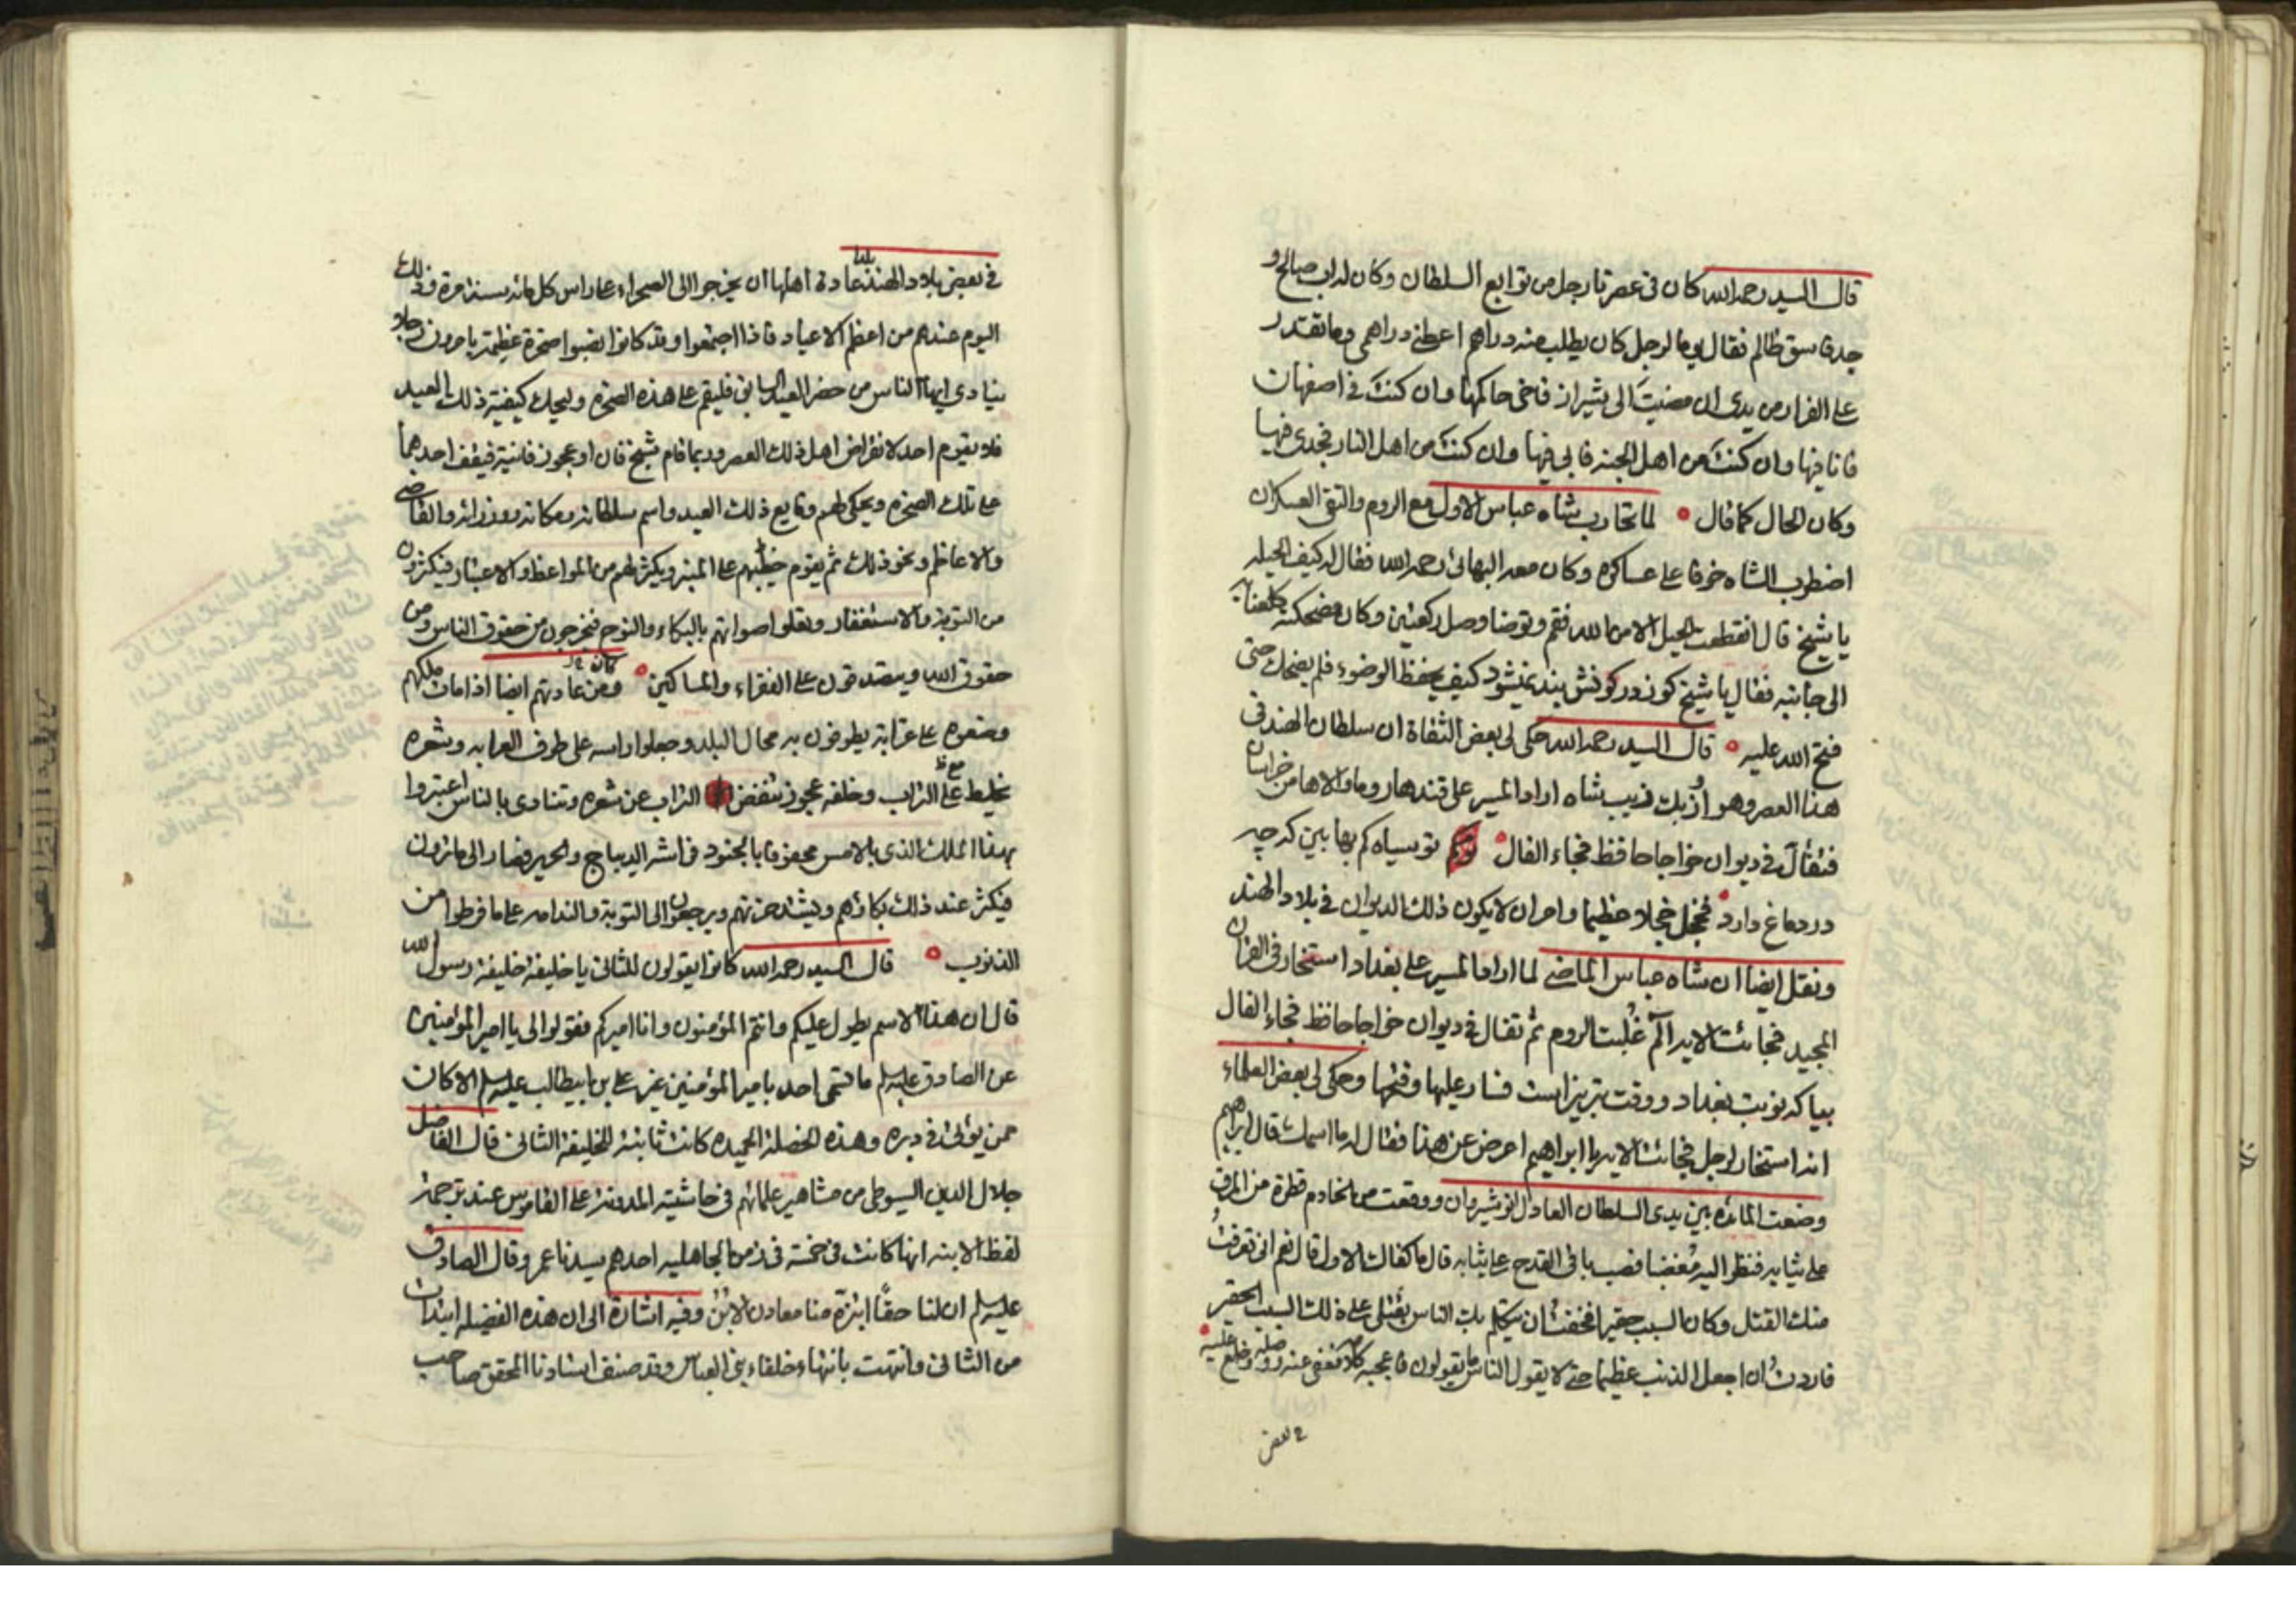 قال السيد رحمه الله كان في عصرنا رجل من توابع السلطان وكان له اب صالح و
جد فاسق ظالم فقال يوما لرجل كان يطلب منه دراهم اعطني دراهمي وما تقتدر
على الفرار من يدي ان مضيت الى شيراز فاخي حاكمها وان كنت في اصفهان
فانا فيها وان كنت من اهل الجنه فابي فيها وان كنت من اهل النار فجدي فيها
وكان الحال كما قال لما تحارب شاه عباس الاول مع الروم والتقى العسكران
اضطرب الشاه خوفا على عساكره وكان معه البهائي رحمه الله فقال له كيف الحيله
يا شيخ قال انقطعت الحيل الا من الله فقم وتوضا وصل ركعتين وكان مضحكه
الى جانبه فقال يا شيخ كوز در كونش بند نميشود كيف يحفظ الوضوء فلم يضحك حتى
فتح الله عليه قال السيد رحمه الله حكى لي بعض الثقاة ان سلطان الهند في
هذا العصر وهو اُزبك زيب شاه اراد المسير على قندهار وما والاها من خراسان
فتفأل في ديوان خواجا حافظ فجاء الفال تو سياه كم بها بين كه چه
در دماغ دارد فخجل خجلا عظيما وامر ان لا يكون ذلك الديوان في بلاد الهند
ونقل ايضا ان شاه عباس الماضي لما اراد المسير على بغداد استخار في القران
المجيد فجائت الايه آلم غُلبت الروم ثم تفال في ديوان خواجا حافظ فجاء الفال
بيا كه نوبت بغداد و وقت تبريز است فسار عليها وفتحها وحكى لي بعض العلماء
انه استخار لرجل فجائت الايه يا ابراهيم اعرض عن هذا فقال له ما اسمك قال ابراهيم
وضعت المائده بين يدي السلطان العادل انوشيروان ووقعت من الخادم قطرة من المرق
على ثيابه فنظر اليه مُغضبا فصب باقي القدح على ثيابه قال ما كفاك الاول قال نعم اني تعرفتُ
منك القتل وكان السبب حقيرا فخفتُ ان يتكلم بك الناس بقتلي على ذلك السبب الحقير
فاردتُ ان اجعل الذنب عظيما حتى لا يقول الناس ما يقولون فاعجبه كلامه فعفى عنه ووصله وخلع عليه
في بعض
في بعض بلاد الهند عادة اهلها ان يخرجوا الى الصحراء على راس كل مائه سنه مرة وذلك
اليوم عندهم من اعظم الاعياد فاذا اجتمعوا وقد كانوا نصبوا صخرة عظيمة يامرون رجلا
ينادي ايها الناس من حضر العيد السابق فليقم على هذه الصخره وليحك كيفية ذلك العيد
فلا يقوم احد لانقراض اهل ذلك العصر وربما قام شيخ فان او عجوز فانية فيقف احدهما
على تلك الصخره ويحكي لهم وقايع ذلك العيد واسم سلطانه ومكانه ووزرائه والقاضي
والاعاظم ونحو ذلك ثم يقوم خطيبهم على المنبر ويكثر لهم من المواعظ والاعتبار فيكثرون
من التوبة والاستغفار وتعلوا اصواتهم بالبكاء والنوح فيخرجون من حقوق الناس ومن
حقوق الله ويتصدقون على الفقراء والمساكين ومن عادتهم ايضا اذا مات ملكهم
وضعوه على عرابة يطوفون به محال البلد وجعلوا راسه على طرف العرابه وشعره
يخليط على التراب وخلفه عجوز تنفض التراب عن شعره وتنادي بالناس اعتبروا
بهذا الملك الذي بالامس محفوفا بالجنود وفراشه الديباج والحرير فصار الى ما ترون
فيكثر عند ذلك بكاؤهم ويشتد حزنهم ويرجعون الى التوبة والندامه على ما فرطوا من
الذنوب قال السيد رحمه الله كانوا يقولون للثاني يا خليفة خليفة رسول الله
قال ان هذا الاسم يطول عليكم وانتم المؤمنون وانا اميركم فقولوا لي يا امير المؤمنين
عن الصادق عليه سلم ما تسمى احد بامير المؤمنين غير علي بن ابيطالب عليه سلم الا كان
ممن يؤتى في دبره وهذه الخصلة الحميده كانت ثابتة للخليفة الثاني قال الفاضل
جلال الدين السيوطي من مشاهير علمائهم في حاشيته المدونة على القاموس عند ترجمة
لفظ الابنه انها كانت في خمسة في زمن الجاهليه احدهم سيدنا عمر وقال الصادق
عليه سلم ان لنا حقًا ابتزه منا معادن الابن وفيه اشارة الى ان هذه الفضيله ابتدات
من الثاني وانتهت بانتهاء خلفاء بني العباس وقد صنف استادنا المحقق صاحب